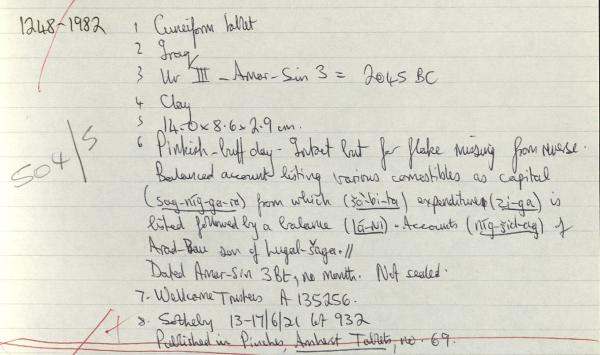 1248-1982 1 Cuneiform tablet
2 Iraq
3 Ur III - Amar-Sin 3 = 2045 BC
4 Clay
504/5
5 14.0 x 8.6 x 2.9 cm.
6 Pinkish-buff clay - Intact but for flake missing from reverse.
Balanced account listing various comestibles as capital
(sag-níg-ga-ra) from which (šà-bi-ta) expenditure (zi-ga) is
listed followed by a balance (lá-NI). Accounts (níg-šid-ag) of
Arad-Bau son of Lugal-šaga.//
Dated Amar-Sin 3 Bt, no month. Not sealed.
7. Wellcome Trustees A 135256.
8. Sotheby 13-17/6/21 lot 932
Published in Pinches, Amherst Tablets, no. 69.